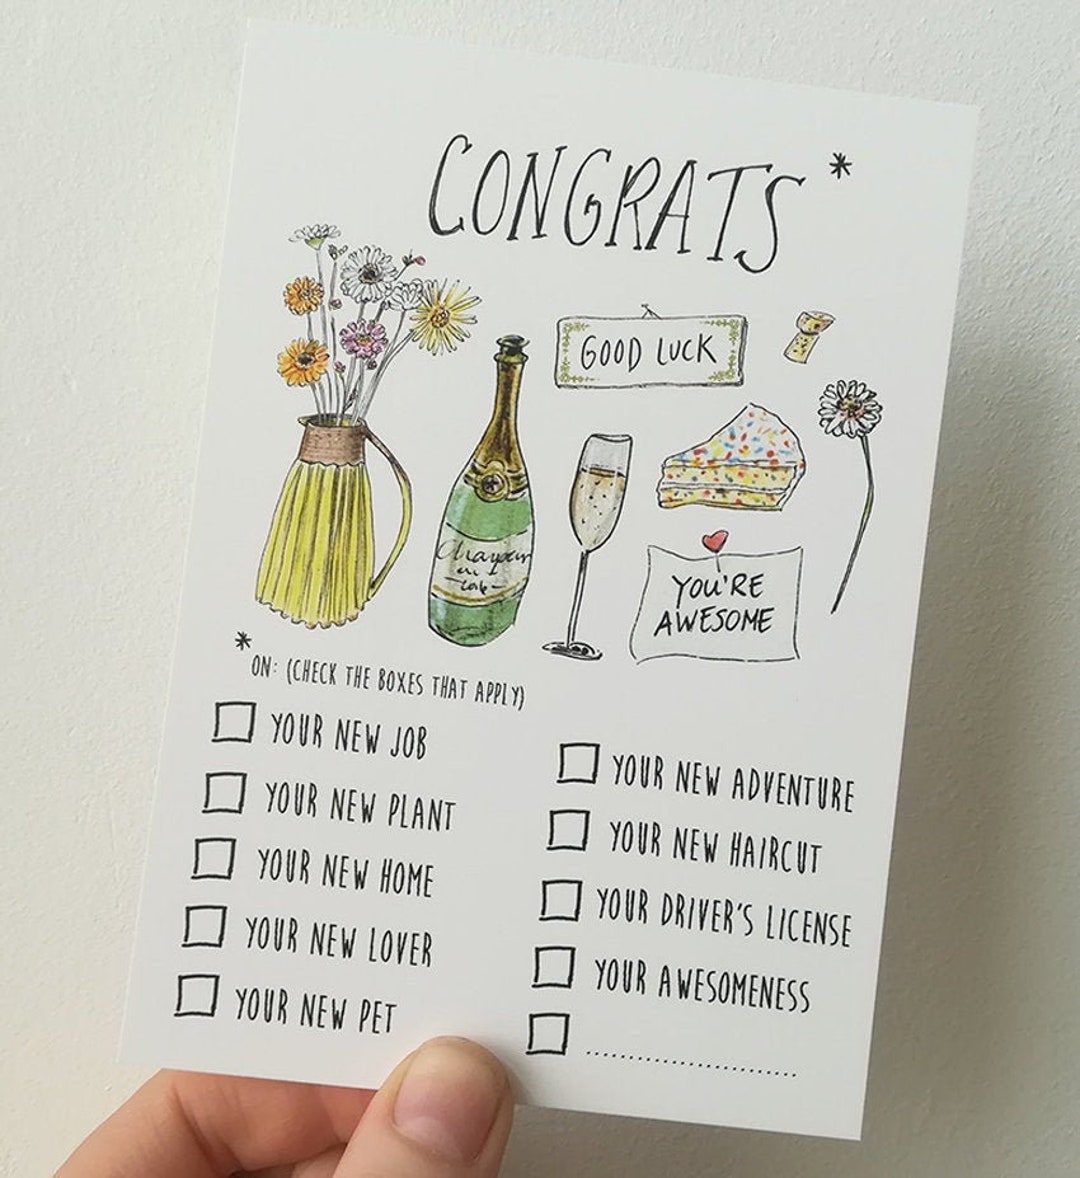 CONGRATS*
GOOD LUCK
YOU'RE
AWESOME
*ON: (CHECK THE BOXES THAT APPLY)
YOUR NEW JOB
YOUR NEW PLANT
YOUR NEW HOME
YOUR NEW LOVER
YOUR NEW PET
YOUR NEW ADVENTURE
YOUR NEW HAIRCUT
YOUR DRIVER'S LICENSE
YOUR AWESOMENESS
........................